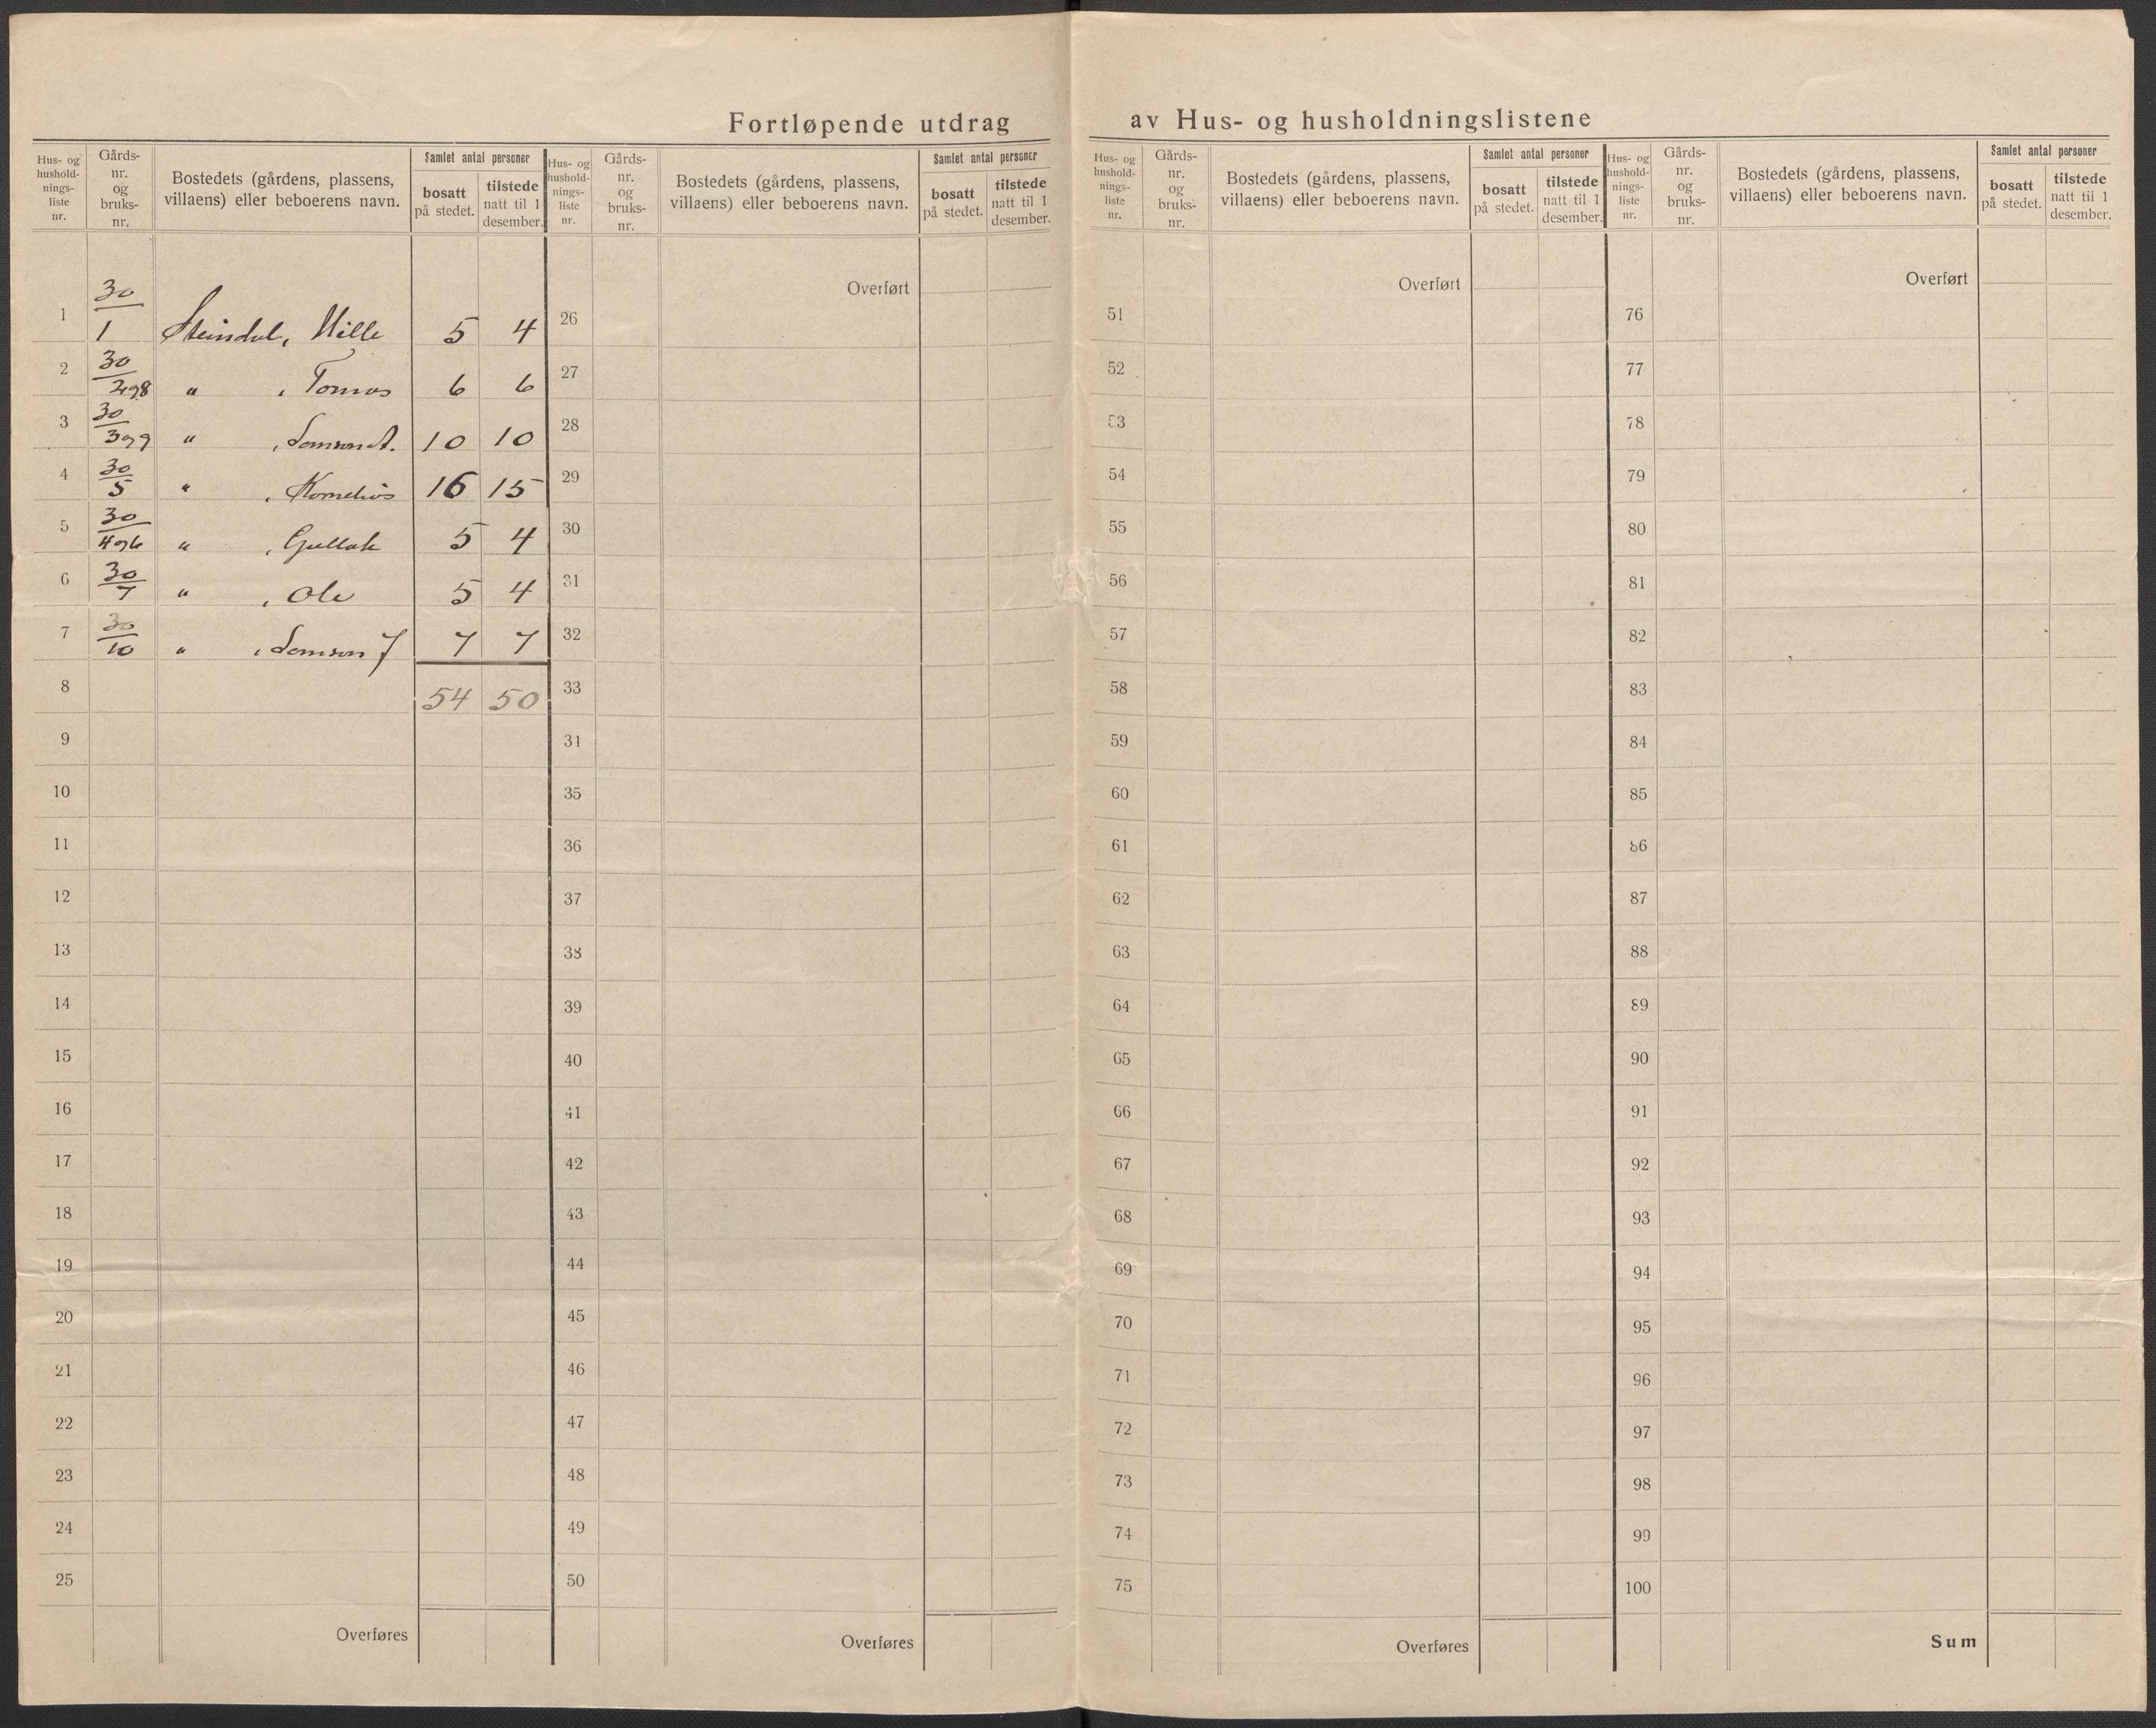 Fortløpende utdrag av Hus- og husholdningslistene
Hus- og hushold-nings-liste nr. Gårds-nr. og bruks-nr. Bostedets (gårdens, plassens, villaens) eller beboerens navn. Samlet antal personer bosatt på stedet. tilstede natt til 1 desember.
1 30/1 Steindal, Mille 5 4
2 30/2og8 " , Tomas 6 6
3 30/3og9 " , Samson A. 10 10
4 30/5 " , Kornelius 16 15
5 30/4og6 " , Gullak 5 4
6 30/7 " , Ole 5 4
7 30/10 " , Samson J 7 7
8 54 50
9
10
11
12
13
14
15
16
17
18
19
20
21
22
23
24
25
Overføres
Hus- og hushold-nings-liste nr. Gårds-nr. og bruks-nr. Bostedets (gårdens, plassens, villaens) eller beboerens navn. Samlet antal personer bosatt på stedet. tilstede natt til 1 desember.
Overført
26
27
28
29
30
31
32
33
34
35
36
37
38
39
40
41
42
43
44
45
46
47
48
49
50
Overføres
Hus- og hushold-nings-liste nr. Gårds-nr. og bruks-nr. Bostedets (gårdens, plassens, villaens) eller beboerens navn. Samlet antal personer bosatt på stedet. tilstede natt til 1 desember.
Overført
51
52
53
54
55
56
57
58
59
60
61
62
63
64
65
66
67
68
69
70
71
72
73
74
75
Overføres
Hus- og hushold-nings-liste nr. Gårds-nr. og bruks-nr. Bostedets (gårdens, plassens, villaens) eller beboerens navn. Samlet antal personer bosatt på stedet. tilstede natt til 1 desember.
Overført
76
77
78
79
80
81
82
83
84
85
86
87
88
89
90
91
92
93
94
95
96
97
98
99
100
Sum